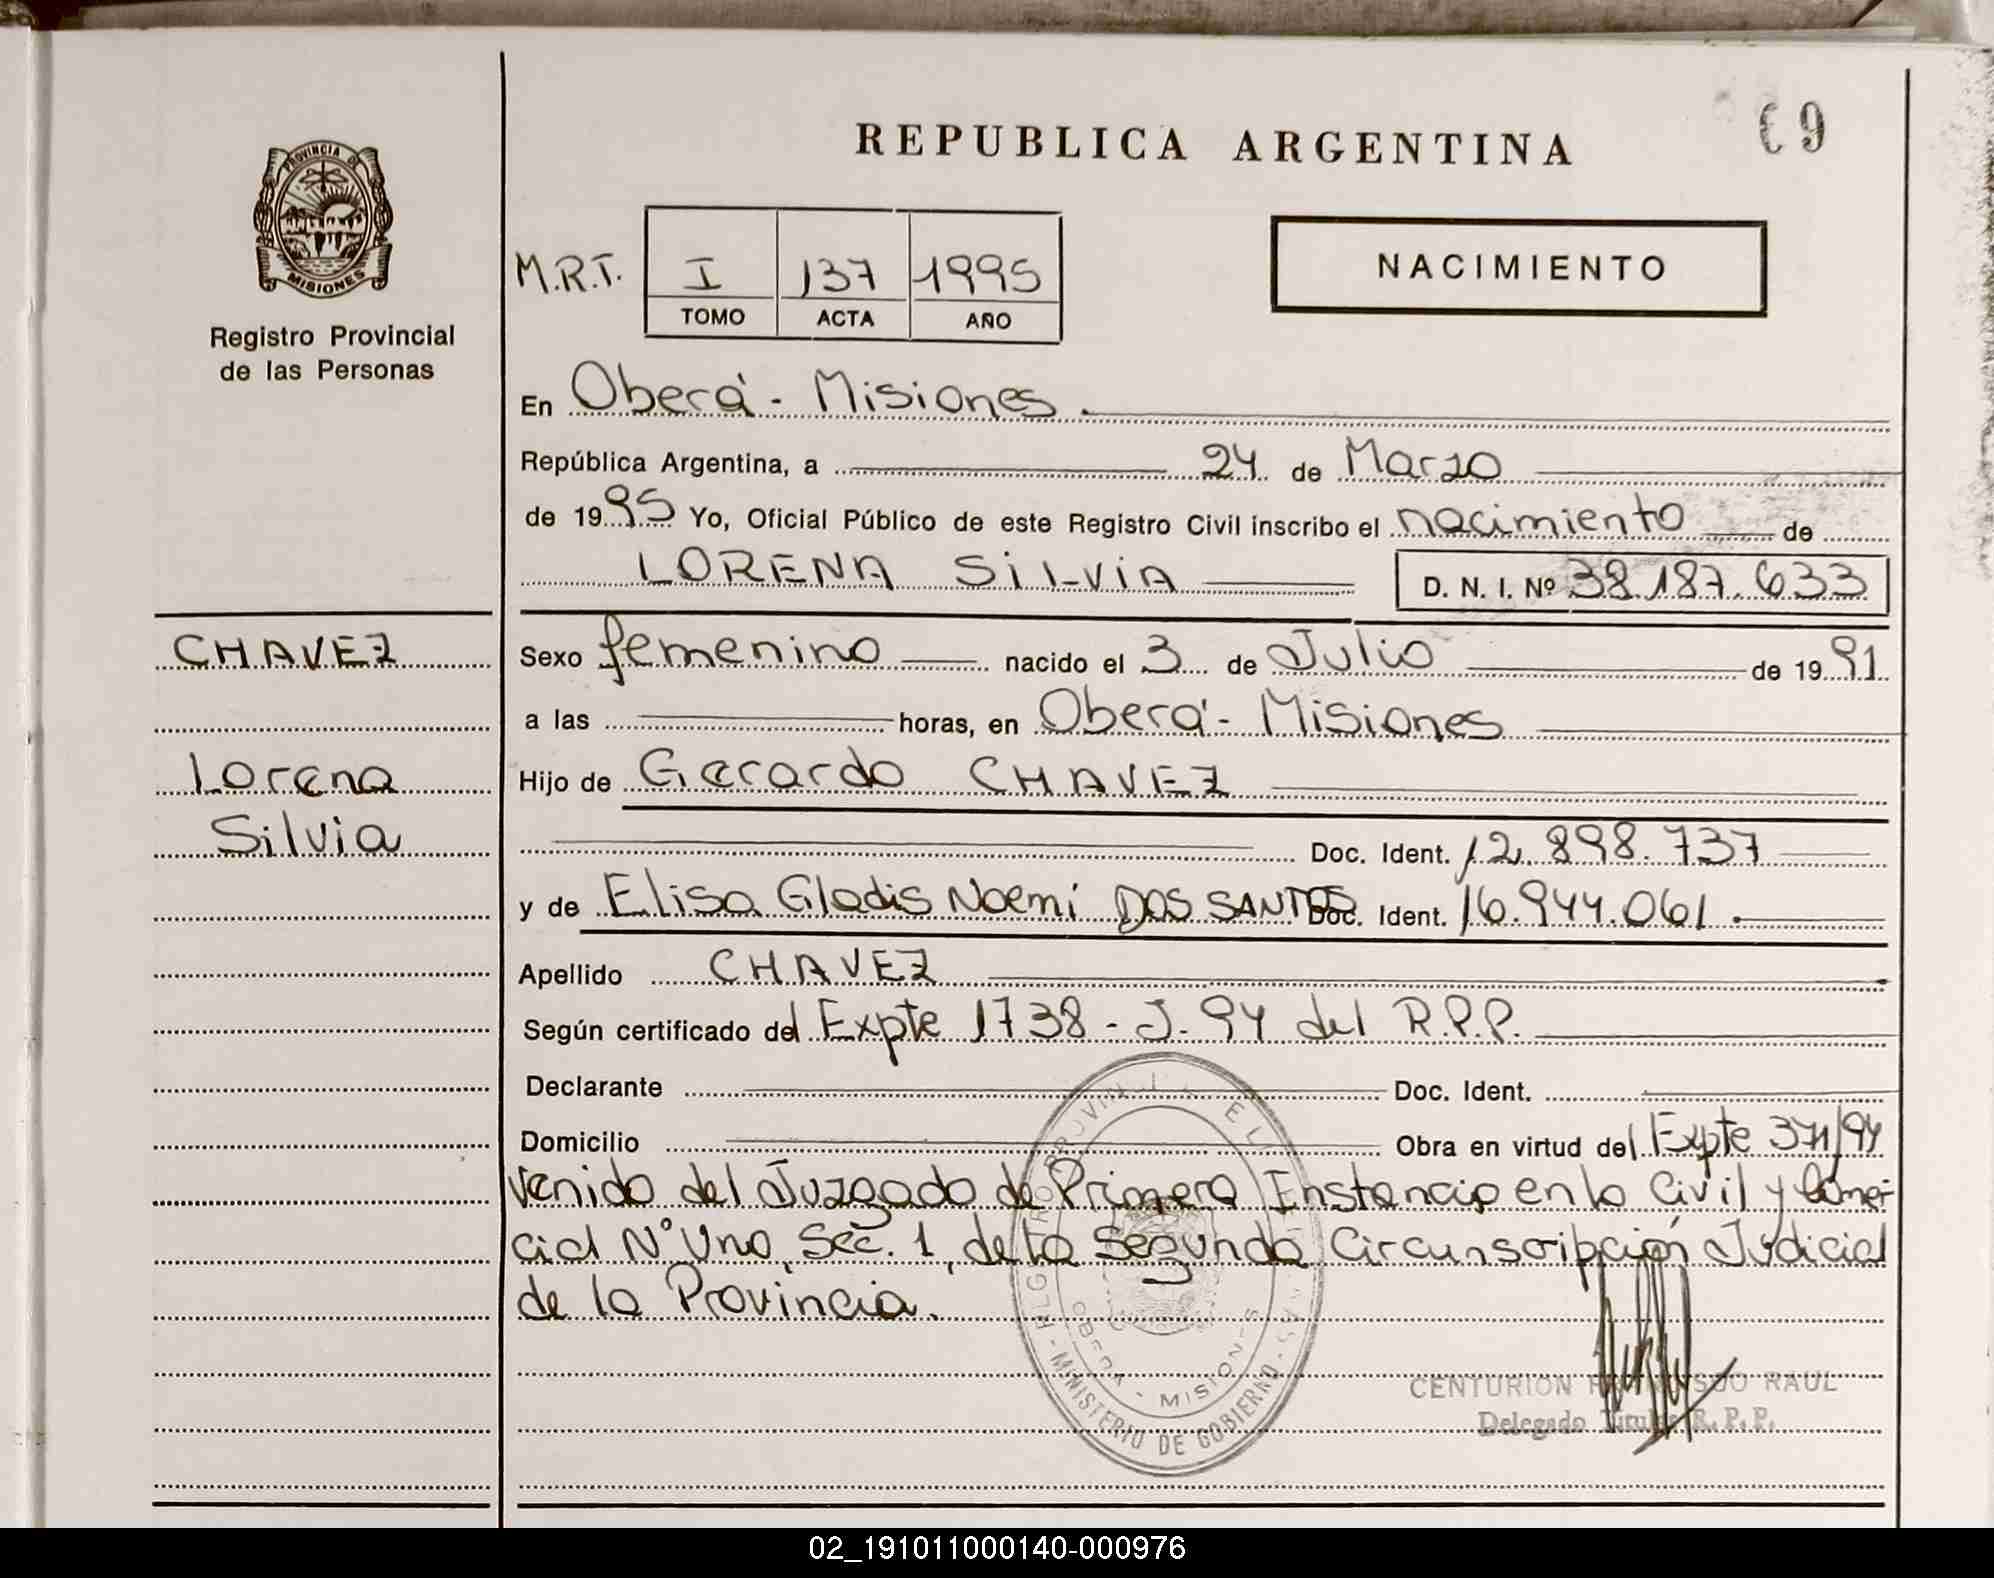 REPUBLICA ARGENTINA
69
PROVINCIA DE
MISIONES
Registro Provincial
de las Personas
M.R.T. I 137 1995
TOMO ACTA AÑO
NACIMIENTO
En Oberá - Misiones.
República Argentina, a 24 de Marzo
de 1995 Yo, Oficial Público de este Registro Civil inscribo el nacimiento de
LORENA SILVIA D. N. I. Nº 38.187.633
CHAVEZ
Lorena
Silvia
Sexo femenino nacido el 3 de Julio de 1991
a las horas, en Oberá - Misiones
Hijo de Gerardo CHAVEZ
Doc. Ident. 12.898.737
y de Elisa Gladis Noemí DOS SANTOS Doc. Ident. 16.944.061.
Apellido CHAVEZ
Según certificado del Expte 1738 - J - 94 del R.P.P.
Declarante Doc. Ident.
Domicilio Obra en virtud del Expte 371/94
venido del Juzgado de Primera Instancia en lo Civil y Comer-
cial N° Uno, Sec. 1, de la Segunda Circunscripción Judicial
de la Provincia.
OBERA - MISIONES
MINISTERIO DE GOBIERNO
CENTURION RAUL
Delegado Titular R. P. P.
02_191011000140-000976